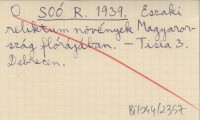 O SOÓ R. 1939. Északi
reliktum növények Magyaror-
szág flórájában. — Tisia 3.
Debrecen.
Bi/044/2357